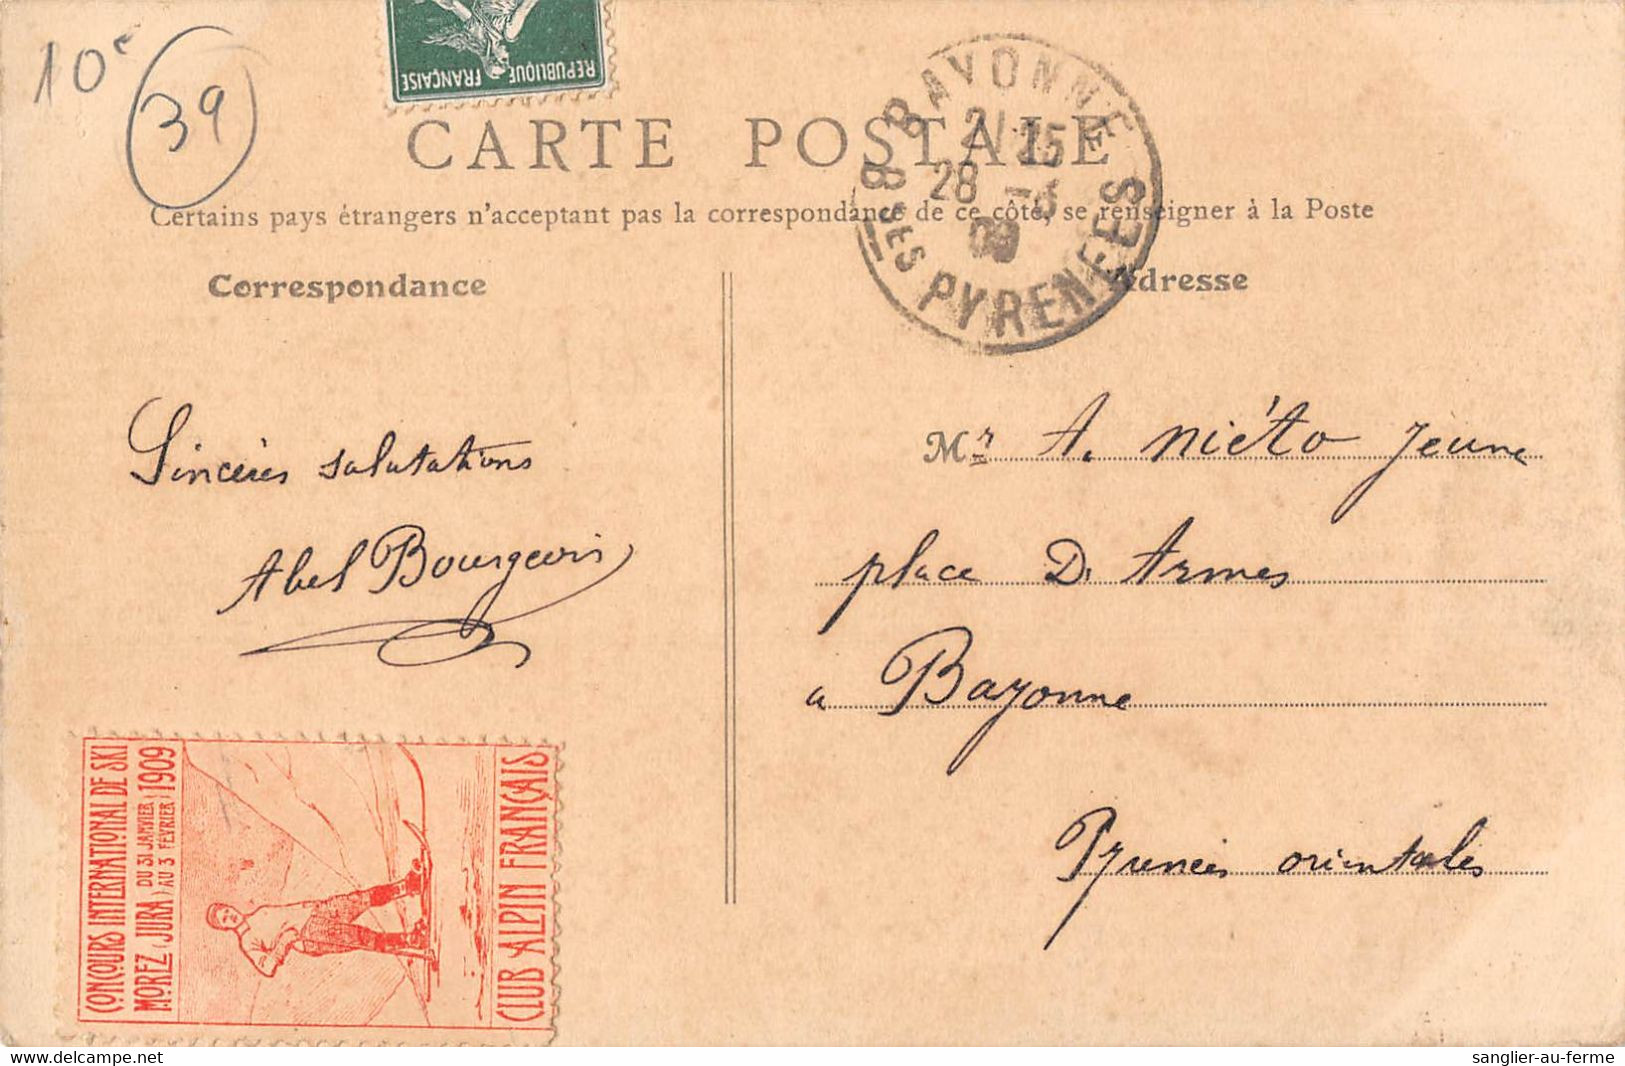 10c
39
REPUBLIQUE FRANÇAISE
BAYONNE
21 25
28 -3
09
BSES PYRENEES
CARTE POSTALE
Certains pays étrangers n'acceptent pas la correspondance de ce côté, se renseigner à la Poste
Correspondance
Adresse
Sincères salutations
Abel Bourgeois
Mr A. Niéto Jeune
place D. Armes
a Bayonne
Pyrenées orientales
CONCOURS INTERNATIONAL DE SKI
MOREZ (JURA) DU 31 JANVIER AU 3 FÉVRIER 1909
CLUB ALPIN FRANÇAIS
© delcampe.net
sanglier-au-ferme